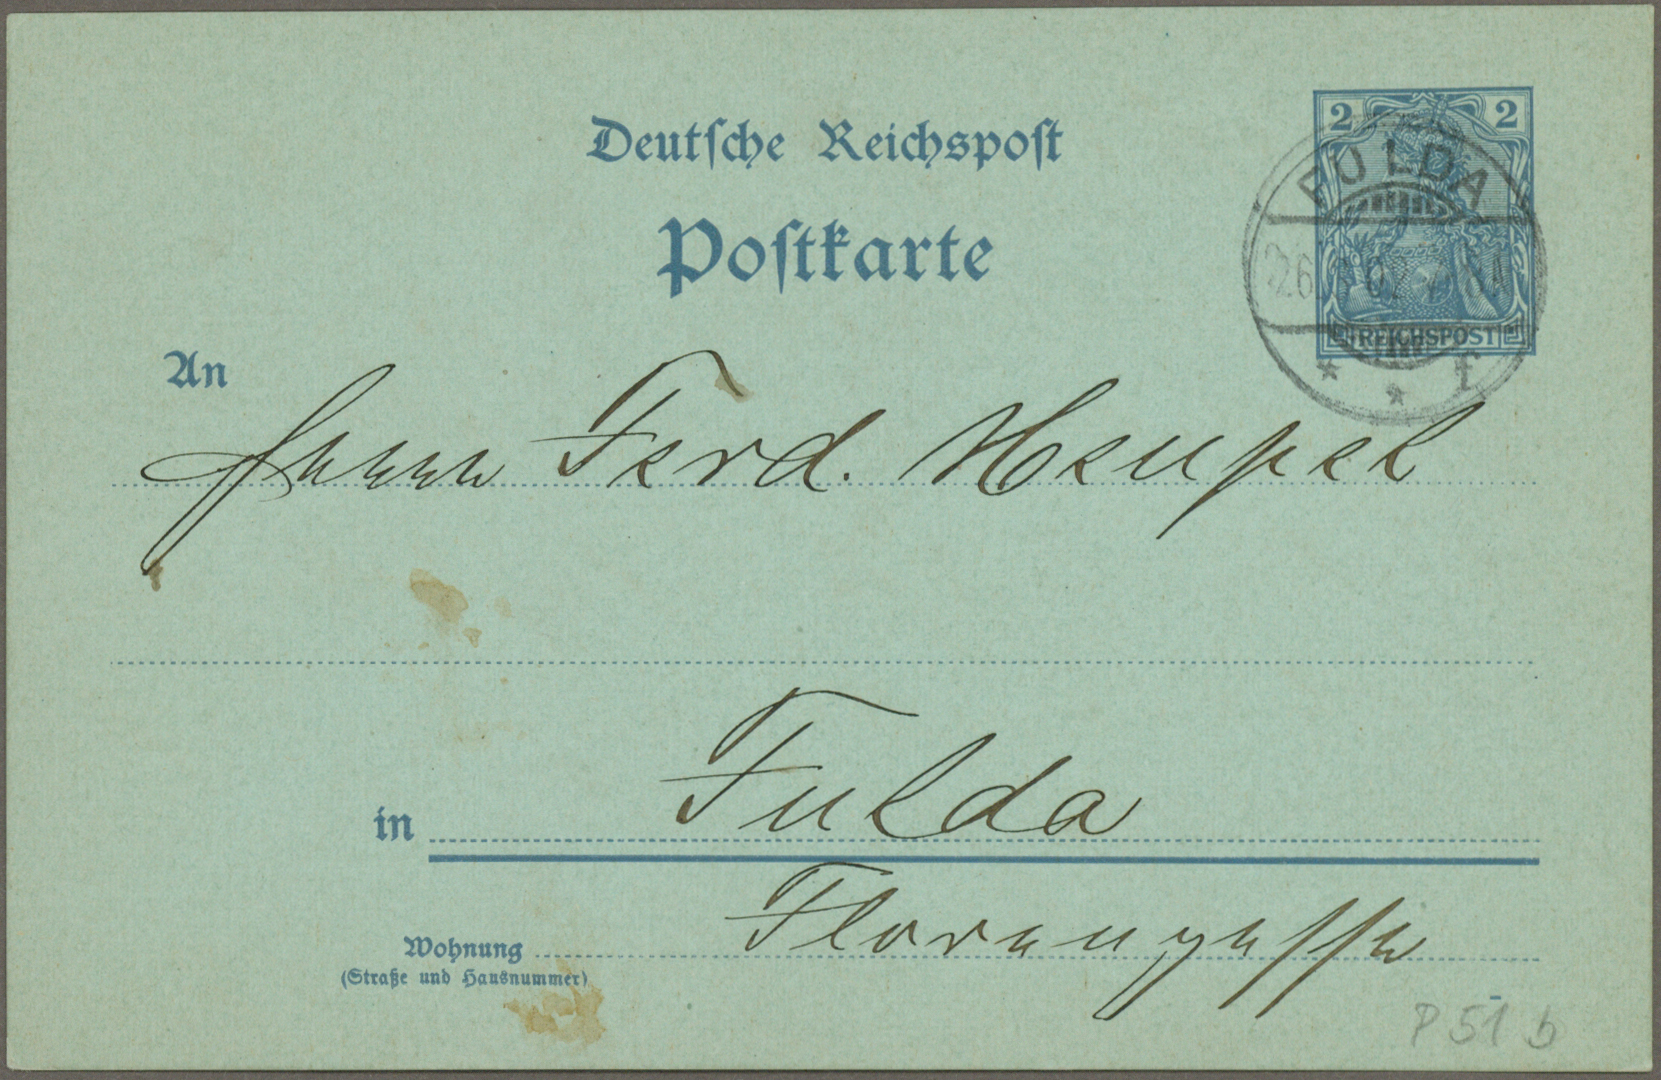 Deutsche Reichspost
Postkarte
2 2
REICHSPOST
FULDA
* * f
An
Herrn Ferd. Heupel
in Fulda
Wohnung Florengasse
(Straße und Hausnummer)
P 51 b